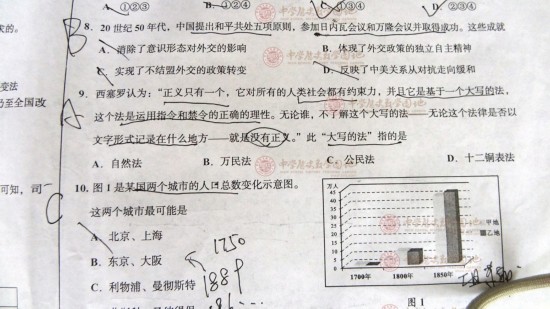 A. ①②③
C. ①③④
D. ②③④
8. 20 世纪 50 年代，中国提出和平共处五项原则，参加日内瓦会议和万隆会议并取得成功。这些成就
A. 消除了意识形态对外交的影响 B. 体现了外交政策的独立自主精神
C. 实现了不结盟外交的政策转变 D. 反映了中美关系从对抗走向缓和
B
9. 西塞罗认为：“正义只有一个，它对所有的人类社会都有约束力，并且它是基于一个大写的法，
这个法是运用指令和禁令的正确的理性。无论谁，不了解这个大写的法——无论这个法律是否以
文字形式记录在什么地方——就是没有正义。”此“大写的法”指的是
A
A. 自然法 B. 万民法 C. 公民法 D. 十二铜表法
10. 图 1 是某国两个城市的人口总数变化示意图。
这两个城市最可能是
C
A. 北京、上海
B. 东京、大阪
C. 利物浦、曼彻斯特
万人
45
40
35
30
25
20
15
10
5
0
1700年 1800年 1850年
甲地
乙地
图 1
变法
乃至全国改
可知，司
中学历史教学园地